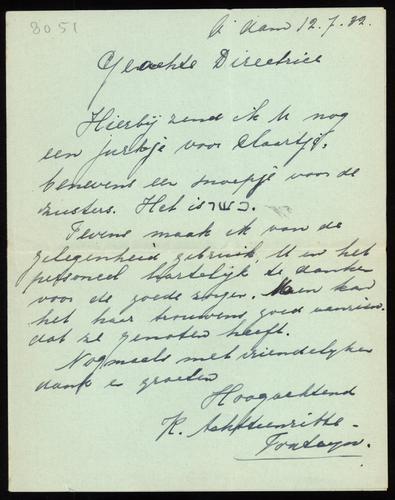 8051
A'dam 12.7.32.
Geachte Directrice
Hierbij zend ik U nog
een jurkje voor Claartje,
benevens een snoepje voor de
zusters. Het is כשר.
Tevens maak ik van de
gelegenheid gebruik U en het
personeel hartelijk te danken
voor de goede zorgen. Men kan
het haar trouwens goed aanzien
dat ze genoten heeft.
Nogmaals met vriendelijken
dank & groeten
Hoogachtend
K.
Fonteyn.